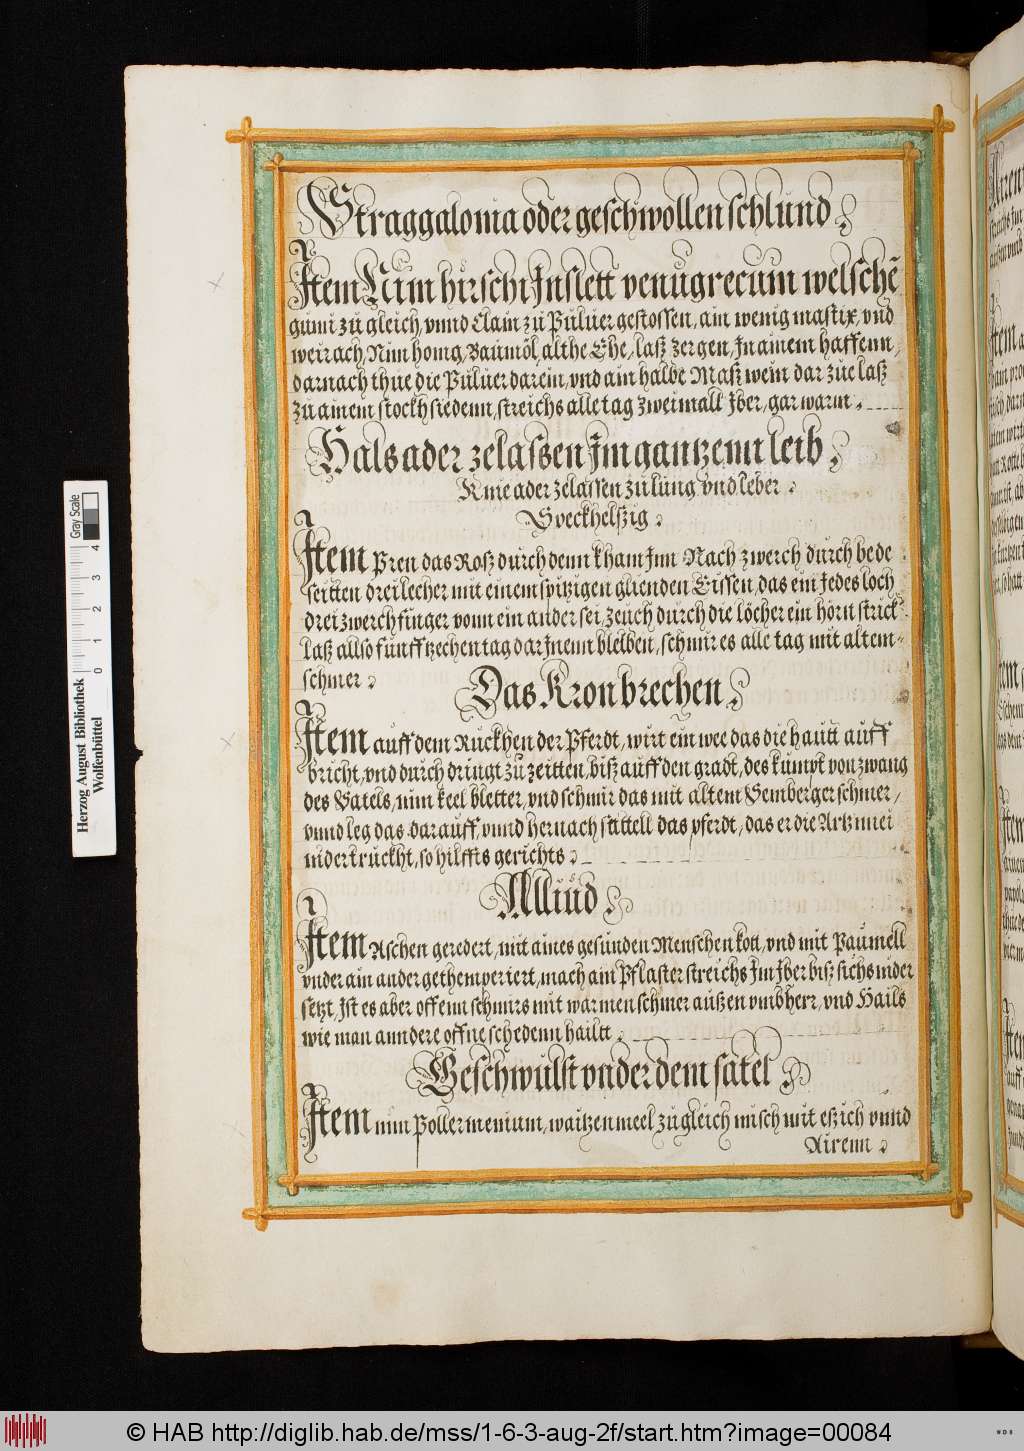 Straggalonia oder geschwollen schlund
Item Nim hirschi Inslett venugrecum welschē
gumi zu gleich, vnnd Clain zu Puluer gestossen, ain wenig mastix, vnd
weirach, Nim honig, Baumöl, althe Ehe, laß zergen, In ainem haffenn,
darnach thue die Puluer darein, vnd ain halbe Maß wein dar zue laß
zu ainem stockh siedenn, streichs alle tag zweimall Iber, gar warm
Hals ader zelassen Im gantzenn leib
Knie ader zelassen zu lung vnd leber
Speckhelszig
Item Pren das Roß durch denn kham Inn Nach zwerch durch bede
seitten drei lecher mit einem spitzigen gliendenn Eissen, das ein Jedes loch
drei zwerch finger vonn ein ander sei, zeuch durch die löcher ein hörn strick
laß allso funfftzechen tag dar Inenn bleiben, schmir es alle tag mit altem
schmer
Das Kron brechen
Item auff dem Ruckhen der Pferdt, wirt ein wee das die hautt auff
bricht, vnd durch dringt zu zeitten, biß auff den gradt, des kumpt von zwang
des Satels, nim keel bletter, vnd schmir das mit altem Semberger schmer,
vnnd leg das darauff, vnnd hernach sattell das pferdt, das er die Artznnei
nidertruckht, so hilffts gerichts
Alliud
Item Aschen geredert, mit aines gesunden Menschen kott, vnd mit Paumell
vnder ain ander gethemperiert, mach ain Pflaster streichs Im Iber biß sichs nider
setzt, Ist es aber offenn schmirs mit warmen schmer außen vmbherr, vnd Hails
wie man anndere offne schedenn hailtt
Geschwulst vnder dem satel
Item nim Pollermenium, waitzen meel zu gleich misch mit eßich vnnd
Airenn
Herzog August Bibliothek
Wolfenbüttel
0 1 2 3 4
Gray Scale
© HAB http://diglib.hab.de/mss/1-6-3-aug-2f/start.htm?image=00084